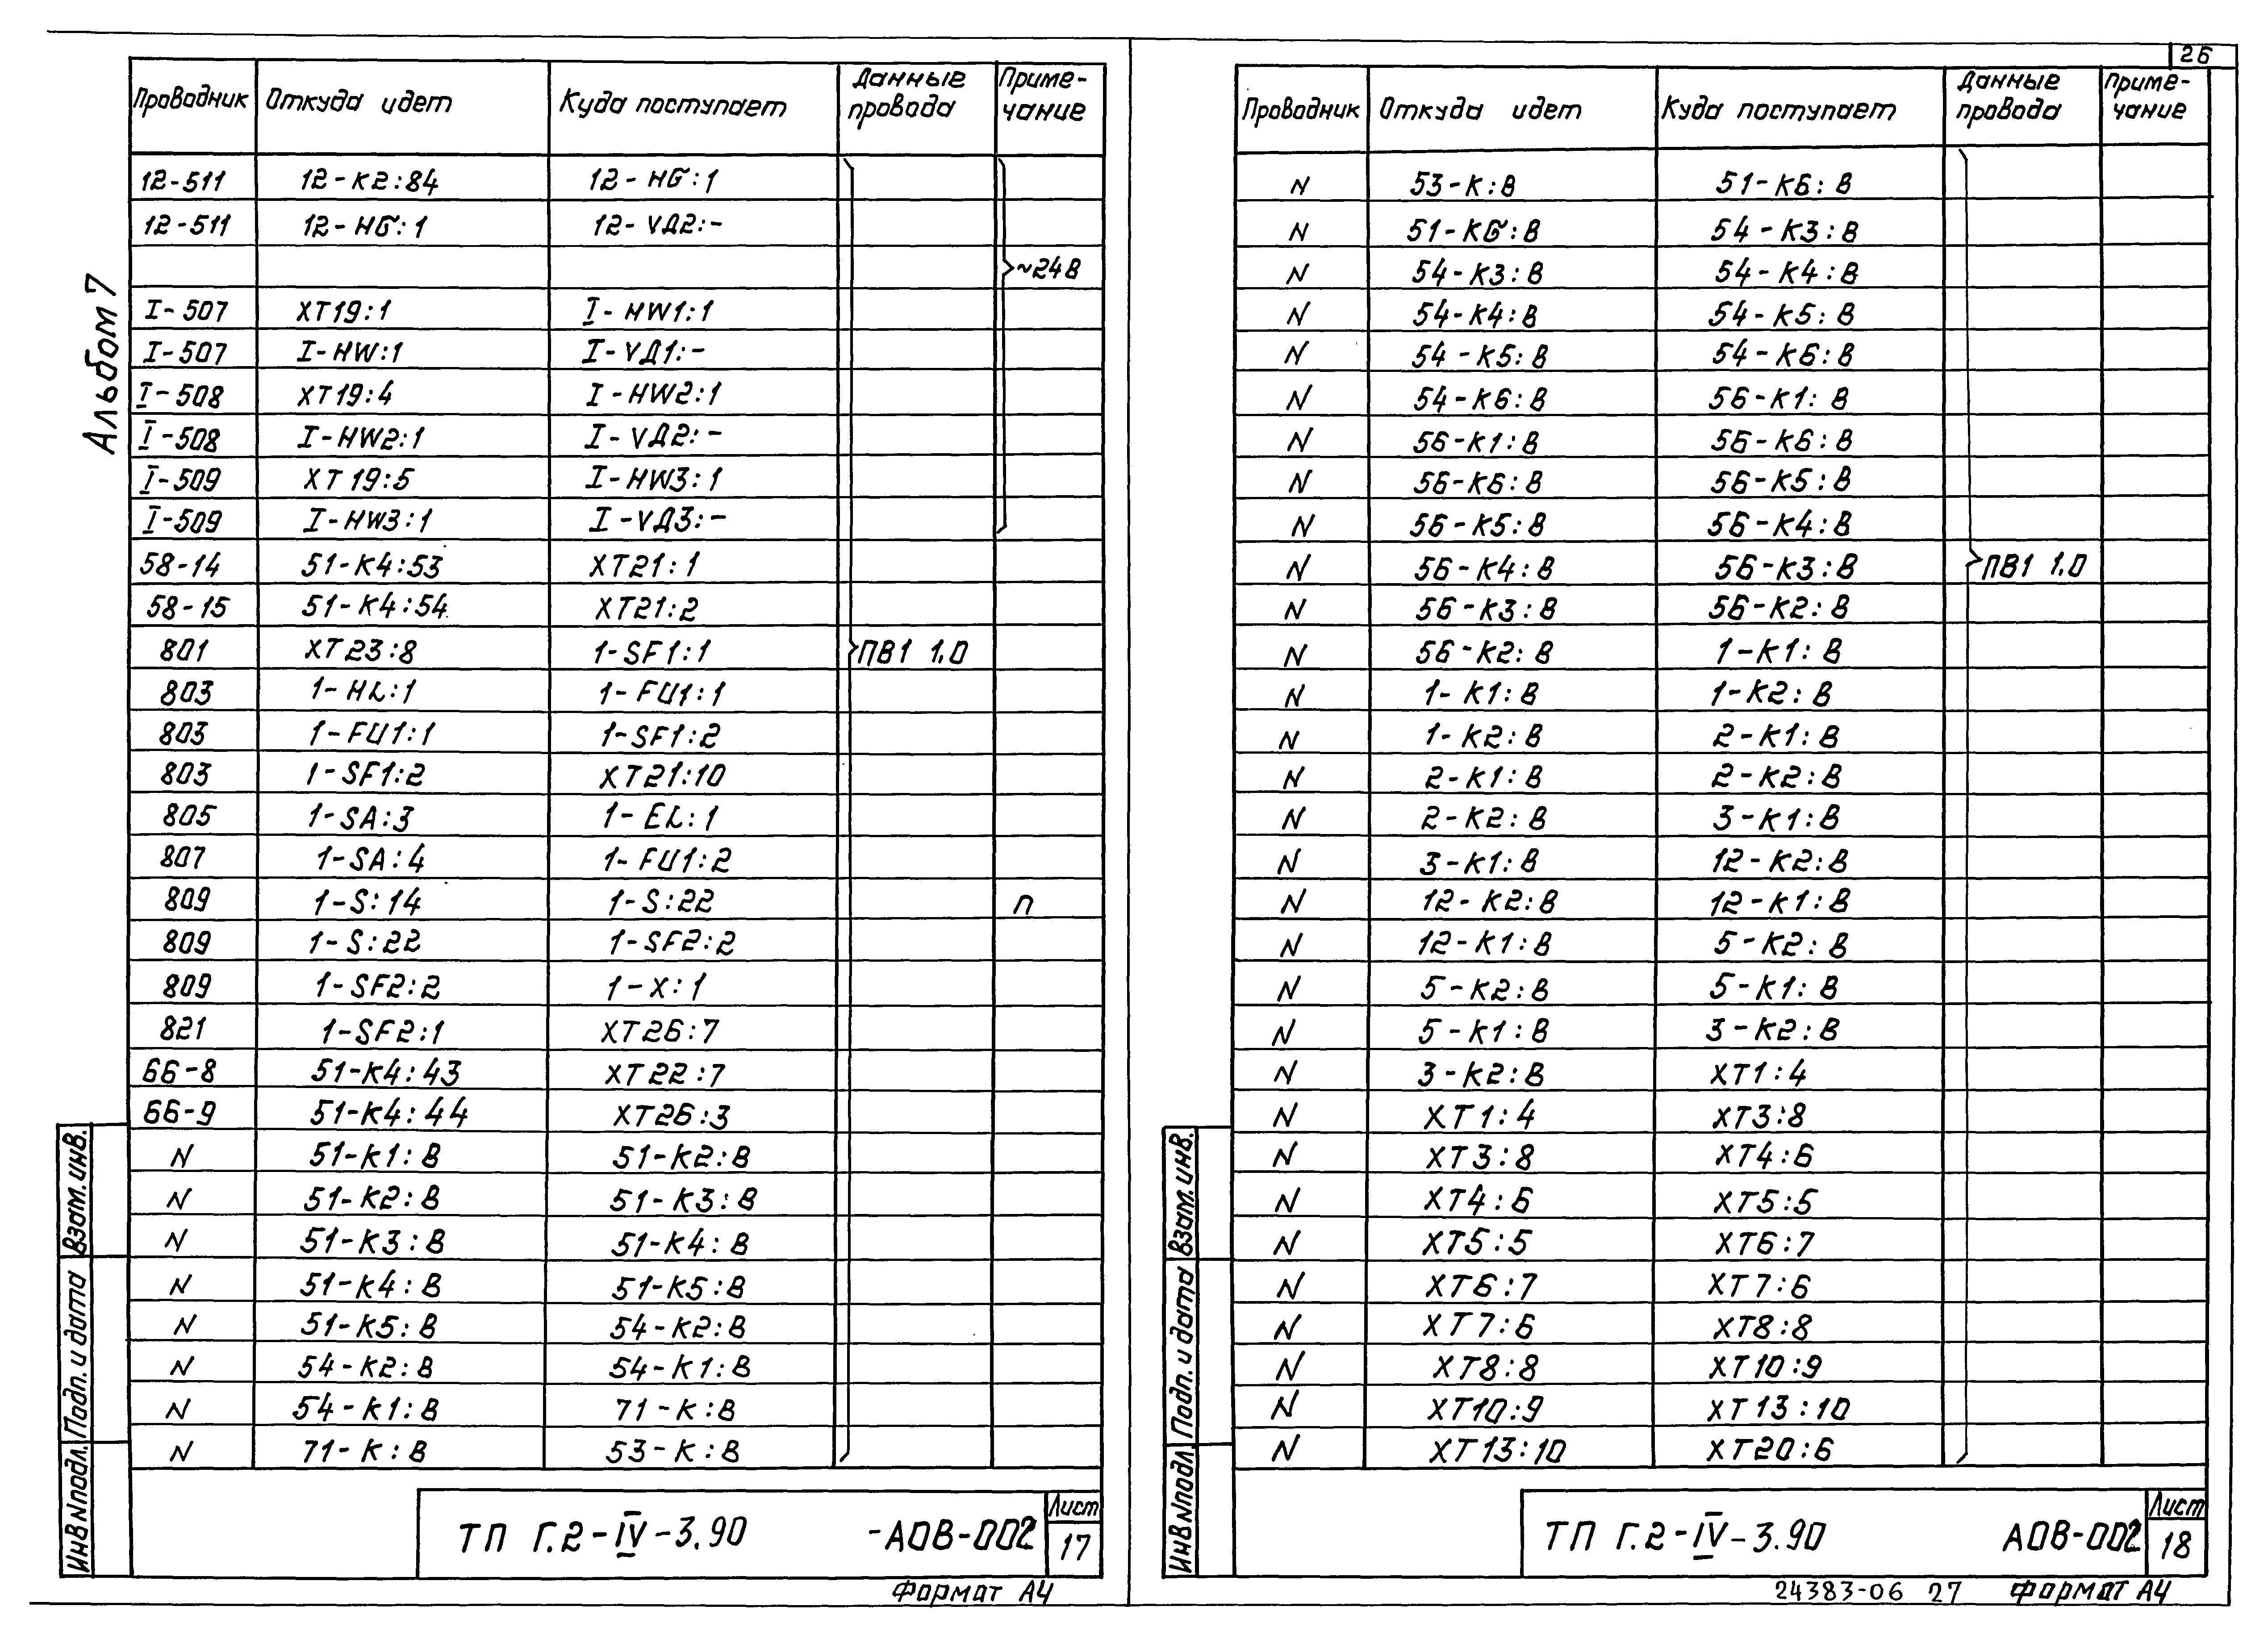 Альбом 7
Проводник Откуда идет Куда поступает Данные провода Приме-чание
12-511 12-К2:84 12-HG:1
12-511 12-HG:1 12-VД2:-
~24В
I-507 XT19:1 I-HW1:1
I-507 I-HW:1 I-VД1:-
I-508 XT19:4 I-HW2:1
I-508 I-HW2:1 I-VД2:-
I-509 XT19:5 I-HW3:1
I-509 I-HW3:1 I-VД3:-
58-14 51-К4:53 XT21:1
58-15 51-К4:54 XT21:2
801 XT23:8 1-SF1:1 ПВ1 1.0
803 1-HL:1 1-FU1:1
803 1-FU1:1 1-SF1:2
803 1-SF1:2 XT21:10
805 1-SA:3 1-EL:1
807 1-SA:4 1-FU1:2
809 1-S:14 1-S:22 п
809 1-S:22 1-SF2:2
809 1-SF2:2 1-X:1
821 1-SF2:1 XT26:7
66-8 51-К4:43 XT22:7
66-9 51-К4:44 XT26:3
N 51-К1:В 51-К2:В
N 51-К2:В 51-К3:В
N 51-К3:В 51-К4:В
N 51-К4:В 51-К5:В
N 51-К5:В 54-К2:В
N 54-К2:В 54-К1:В
N 54-К1:В 71-К:В
N 71-К:В 53-К:В
Взам.инв.
Подп. и дата
Инв N подл.
ТП Г.2-IV-3.90 -АОВ-002
Лист
17
Формат А4
26
Проводник Откуда идет Куда поступает Данные провода Приме-чание
N 53-К:В 51-К6:В
N 51-К6:В 54-К3:В
N 54-К3:В 54-К4:В
N 54-К4:В 54-К5:В
N 54-К5:В 54-К6:В
N 54-К6:В 56-К1:В
N 56-К1:В 56-К6:В
N 56-К6:В 56-К5:В
N 56-К5:В 56-К4:В
N 56-К4:В 56-К3:В ПВ1 1.0
N 56-К3:В 56-К2:В
N 56-К2:В 1-К1:В
N 1-К1:В 1-К2:В
N 1-К2:В 2-К1:В
N 2-К1:В 2-К2:В
N 2-К2:В 3-К1:В
N 3-К1:В 12-К2:В
N 12-К2:В 12-К1:В
N 12-К1:В 5-К2:В
N 5-К2:В 5-К1:В
N 5-К1:В 3-К2:В
N 3-К2:В XT1:4
N XT1:4 XT3:8
N XT3:8 XT4:6
N XT4:6 XT5:5
N XT5:5 XT6:7
N XT6:7 XT7:6
N XT7:6 XT8:8
N XT8:8 XT10:9
N XT10:9 XT13:10
N XT13:10 XT20:6
Взам.инв.
Подп. и дата
Инв N подл.
ТП Г.2-IV-3.90 АОВ-002
Лист
18
24383-06 27 Формат А4